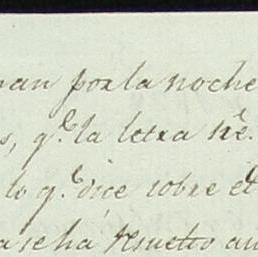 nan por la noche
s, q.e la letra
lo q.e dice sobre el
se ha resuelto